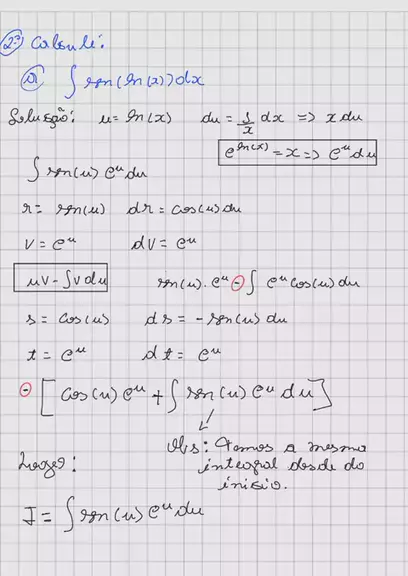 2ª) Calcule:
a) ∫ sen(ln(x)) dx
Solução: u = ln(x) du = 1/x dx => x du
e^ln(x) = x => e^u du
∫ sen(u) e^u du
r = sen(u) dr = cos(u) du
v = e^u dv = e^u
uv - ∫ v du sen(u) . e^u - ∫ e^u cos(u) du
s = cos(u) ds = - sen(u) du
t = e^u dt = e^u
- [cos(u) e^u + ∫ sen(u) e^u du]
Obs: Temos a mesma
integral desde do
início.
Logo:
I = ∫ sen(u) e^u du